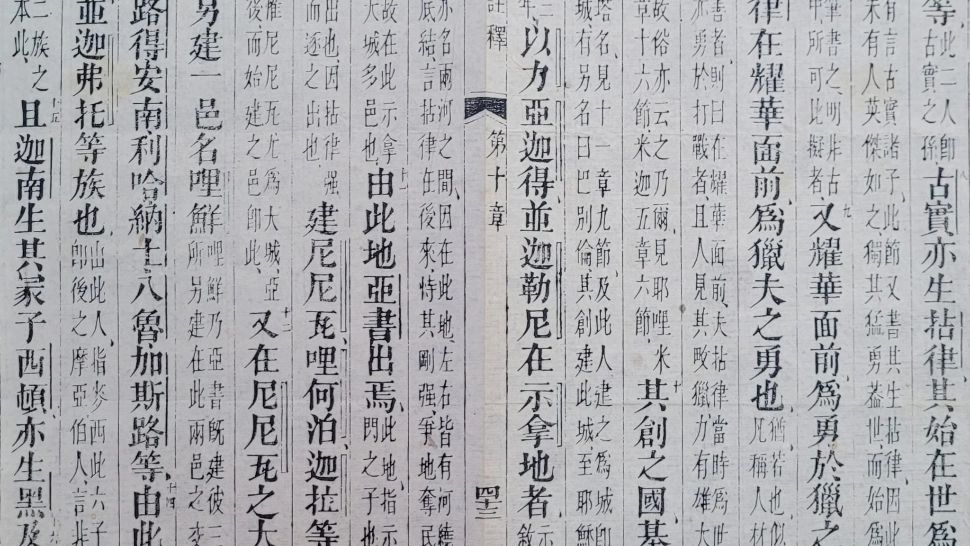 等此二人即
古實之孫
古實亦生拈律其始在世爲
有言古實諸子、此節又書其生拈律、因此
未有人英傑如之獨其猛勇葢世、而始爲
筆書之明非古者
中所可比擬者
九又耀華面前爲勇於獵之
律在耀華面前爲獵夫之勇也
猶若也似
凡稱人材
善者、則曰在耀華面前、夫拈律當時爲世
亦勇於打戰者、且人見其畋獵力有雄大
故俗亦云之乃爾、見耶哩米
章十六節米迦五章六節
十其創之國基
塔名、見十一章九節、及此人建之爲城即
城有另名曰巴别倫其創建此城、至耶穌
年、
以力亞迦得並迦勒尼在示拿地者
示
敘
註釋
第十章
四十三
亦名兩河之間、因在此地、左右皆有河繞
底結言拈律在後來、恃其剛強爭地奪民
故在此示拿
大城多邑也
十一由此地亞書出焉
此地、指示
門之子也
出也、因拈律強
而逐之出也
建尼尼瓦哩何泊迦拉等
惟尼尼瓦尤爲大城、亞
後而始建之邑即此
十二又在尼尼瓦之大
另建一邑名哩鮮
哩鮮乃亞書旣建彼三
所另建在此兩邑之
路得安南利哈納土八魯加斯路等十四由此
並迦弗托等族也
出此人、指麥西此六子
即後之摩亞伯人、言非
二族之
本此
十五且迦南生其家子西頓亦生黑及